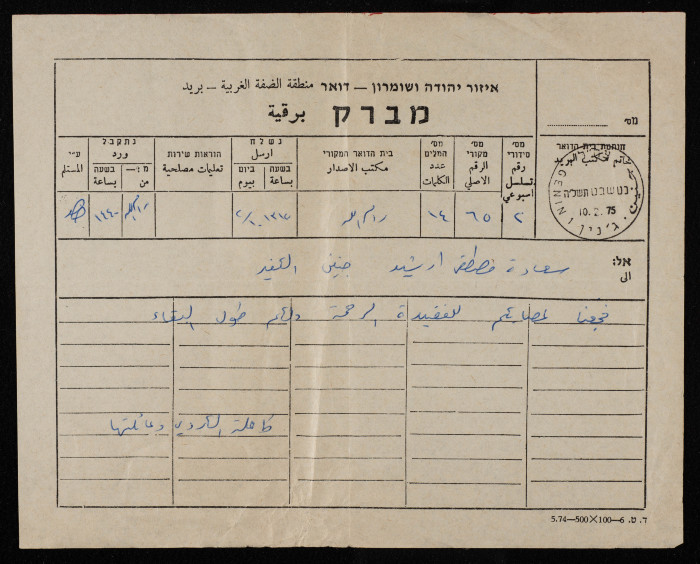 איזור יהודה ושומרון — דואר منطقة الضفة الغربية — بريد
מברק برقية
מס׳
חותמת בית הדואר
خاتم مكتب البريد
GENIN
כט שבט תשל״ה
10.2.75
ג׳נין
מס׳ סידורי
رقم تسلسل اسبوعي
מס׳ מקורי
الرقم الاصلي
מס׳ המלים
عدد الكلمات
בית הדואר המקורי
مكتب الاصدار
נשלח
ارسل
בשעה
بساعة
ביום
بيوم
הוראות שירות
تعليمات مصلحية
נתקבל
ورد
בשעה
بساعة
מ:—
من
ע״י
المستلم
٢ ٦٥ ١٤ رام الله ١٣١٥ ٢/١٠ رام الله ١١٤٠
אל:
الى
سعادة مصطفى ارشيد جنين الكفير
فجعنا لمصابكم للفقيدة الرحمة ولكم طول البقاء
وعائلتها
ד. ט. 6—100×500—5.74